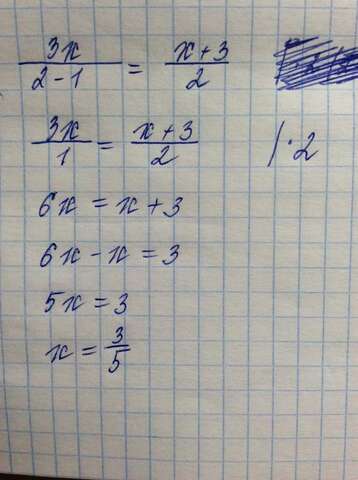 3x/(2-1) = (x+3)/2
3x/1 = (x+3)/2 |·2
6x = x+3
6x-x = 3
5x = 3
x = 3/5